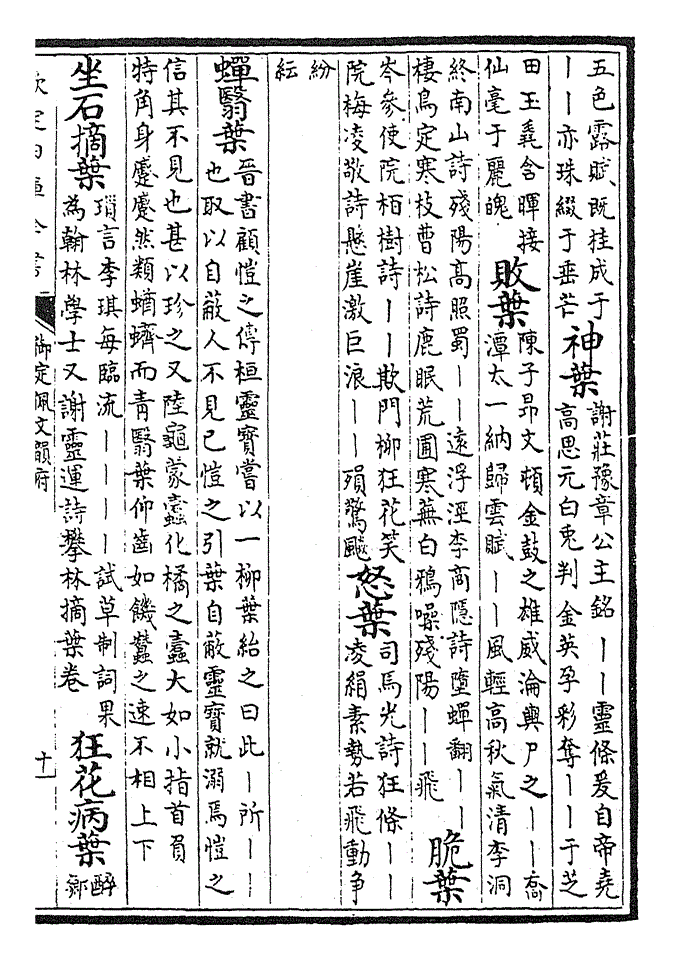 五色露賦既挂成于
丨丨亦珠綴于垂芒
神葉
謝莊豫章公主銘丨丨靈條爰自帝堯
高思元白兎判金英孕彩奪丨丨于芝
田玉彘含暉接
仙毫于麗魄
敗葉
陳子昻文頓金鼓之雄威淪輿尸之丨丨喬
潭太一納歸雲賦丨丨風輕高秋氣清李洞
終南山詩殘陽高照蜀丨丨遠浮涇李商隱詩墮蟬翻丨丨
棲鳥定寒枝曹松詩鹿眠荒圃寒蕪白鴉噪殘陽丨丨飛
脆葉
岑參使院栢樹詩丨丨欺門柳狂花笑
院梅凌敬詩懸崖激巨浪丨丨殞驚飈
怒葉
司馬光詩狂條丨丨
凌絹素勢若飛動爭
紛
紜
蟬翳葉
晉書顧愷之傳桓靈寶嘗以一柳葉紿之曰此丨所丨丨
也取以自蔽人不見已愷之引葉自蔽靈寶就溺焉愷之
信其不見也甚以珍之又陸龜蒙蠧化橘之蠧大如小指首負
特角身蹙蹙然類蝤蠐而青翳葉仰齒如饑蠶之速不相上下
坐石摘葉
瑣言李琪每臨流丨丨丨丨試草制詞果
為翰林學士又謝靈運詩攀林摘葉卷
狂花病葉
醉
鄉
欽定四庫全書
御定佩文韻府
十